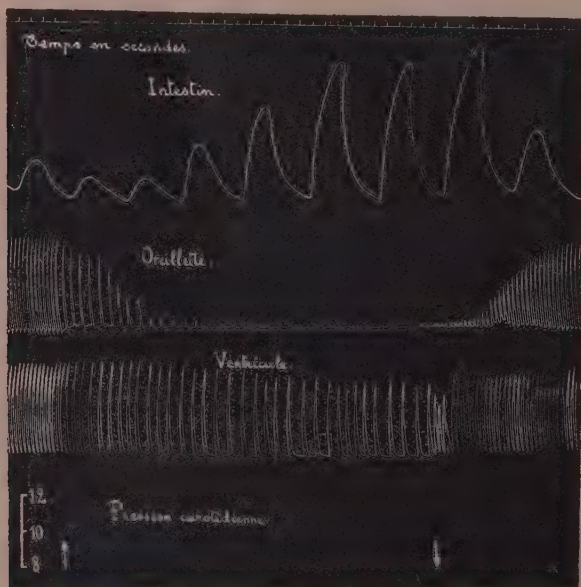 Temps en secondes.
Intestin.
Oreillette.
Ventricule.
Pression carotidienne
12
10
8